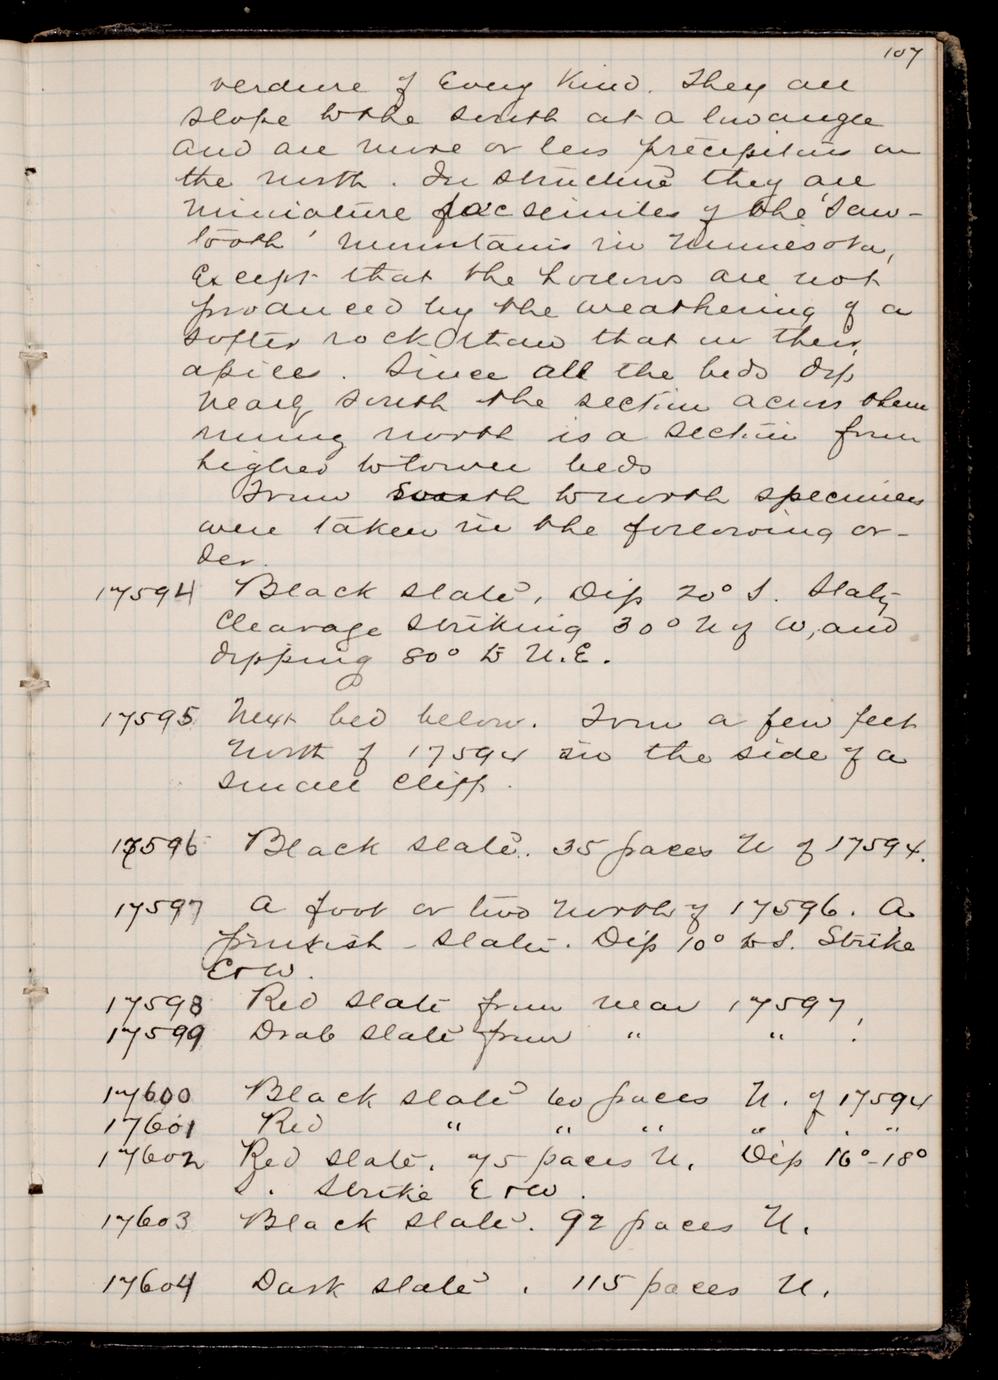 107
verdure of Every Kind. They all
slope to the south at a low angle
and are more or less precipitous on
the north. In structure they are
miniature facsimiles of the 'Saw-
tooth' mountains in Minnesota,
Except that the hollows are not
produced by the weathering of a
softer rock than that in their
apices. Since all the beds dip
nearly south the section across them
running north is a section from
higher to lower beds
From South to north specimens
were taken in the following or-
der.
17594 Black slate, Dip 20° S. Slaty
Cleavage striking 30° N of W, and
dipping 80° to N.E.
17595 Next bed below. From a few feet
North of 17594 in the side of a
small cliff.
17596 Black slate. 35 paces N of 17594.
17597 A foot or two north of 17596. A
pinkish slate. Dip 10° to S. Strike
E & W.
17598 Red slate from near 17597.
17599 Drab slate from " " .
17600 Black slate 60 paces N. of 17594
17601 Red " " " " . "
17602 Red slate. 75 paces N. Dip 16°-18°
S. Strike E & W.
17603 Black slate. 92 paces N.
17604 Dark slate. 115 paces N.